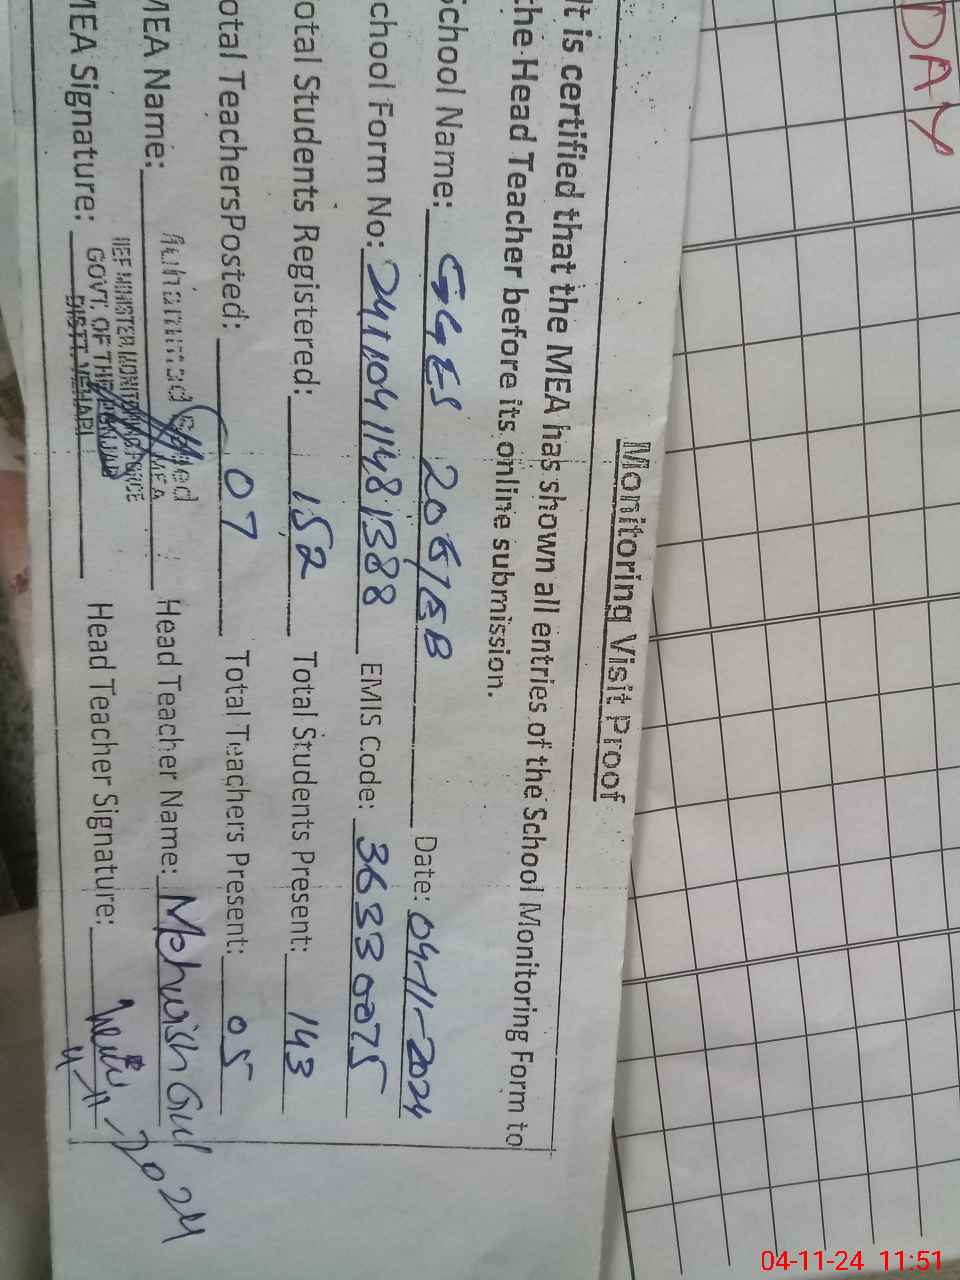 DAY
Monitoring Visit Proof
It is certified that the MEA has shown all entries of the School Monitoring Form to
the Head Teacher before its online submission.
School Name: GGES 206/EB Date: 04-11-2024
School Form No: 24110411481388 EMIS Code: 36330075
otal Students Registered: 152 Total Students Present: 143
otal TeachersPosted: 07 Total Teachers Present: 05
MEA Name: Muhammad Saeed MEA Head Teacher Name: Mehwish Gul
HIEF MINISTER MONITORING FORCE
GOVT. OF THE PUNJAB
DISTT. VEHARI
MEA Signature: Head Teacher Signature:
4-11-2024
04-11-24 11:51